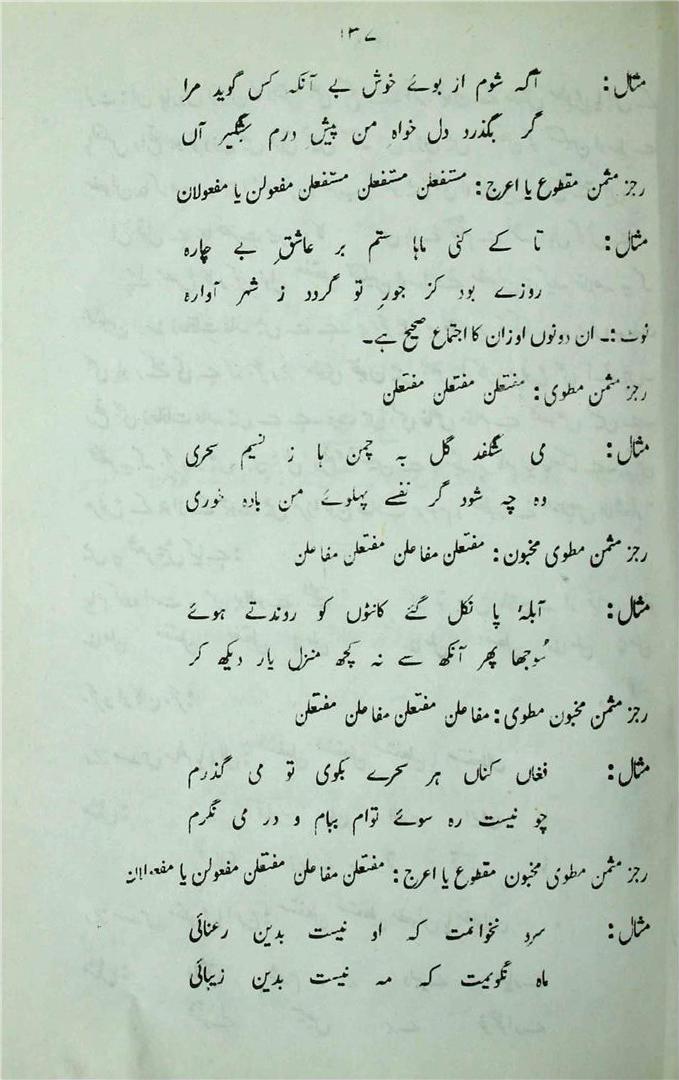 ۱۳۷
مثال: آگہ شوم از بوئے خوش بے آنکہ کس گوید مرا
گر بگذرد دل خواہ من پیش درم شبگیر آں
رجز مثمن مقطوع یا اعرج: مستفعلن مستفعلن مستفعلن مفعولن یا مفعولان
مثال: تا کے کنی ماہا ستم بر عاشقِ بے چارہ
روزے بود کز جورِ تو گردد ز شہر آوارہ
نوٹ:۔ ان دونوں اوزان کا اجتماع صحیح ہے۔
رجز مثمن مطوی: مفتعلن مفتعلن مفتعلن
مثال: می شگفد گل بہ چمن ہا ز نسیم سحری
وہ چہ شود گر نفسے پہلوئے من بادہ خوری
رجز مثمن مطوی مخبون: مفتعلن مفاعلن مفتعلن مفاعلن
مثال: آبلۂ پا نکل گئے کانٹوں کو روندتے ہوئے
سُوجھا پھر آنکھ سے نہ کچھ منزل یار دیکھ کر
رجز مثمن مخبون مطوی: مفاعلن مفتعلن مفاعلن مفتعلن
مثال: فغاں کناں ہر سحرے بکوی تو می گذرم
چو نیست رہ سوئے توام ببام و در می نگرم
رجز مثمن مطوی مخبون مقطوع یا اعرج: مفتعلن مفاعلن مفتعلن مفعولن یا مفعولان
مثال: سرو نخوانمت کہ او نیست بدین رعنائی
ماہ نگویمت کہ مہ نیست بدین زیبائی